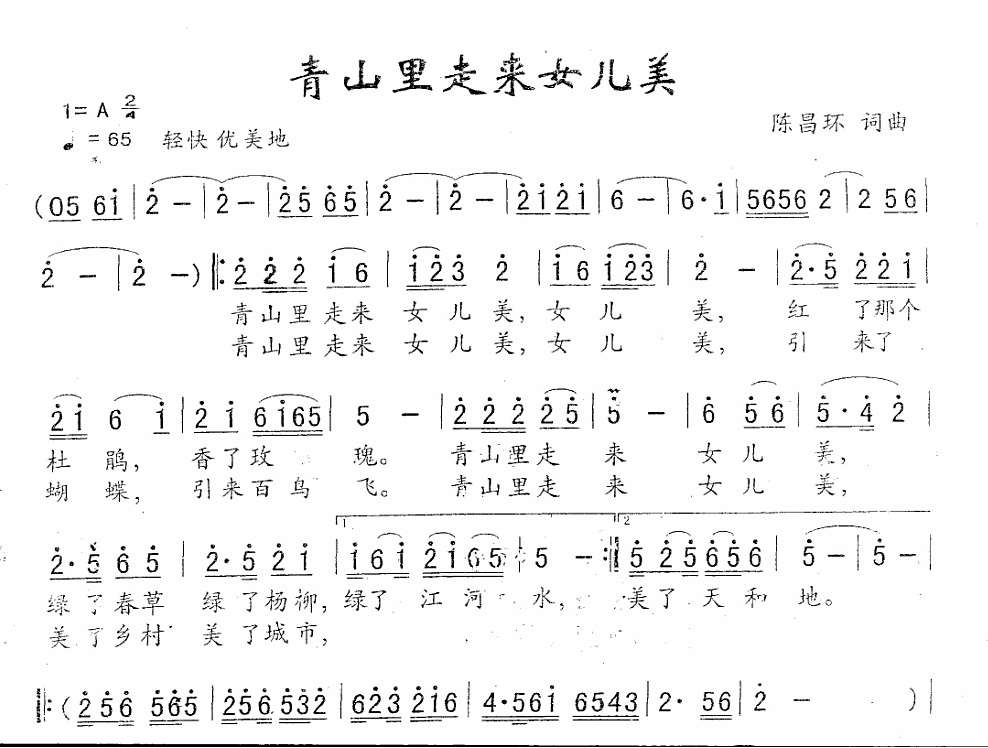 青山里走来女儿美
1= A 2/4
陈昌环 词曲
♩ = 65 轻快 优美地
(05 61|2 - |2 - |25 65|2 - |2 - |2121|6 - |6·1|5656 2|2 56|
2 - |2 -)|:2 2 2 16|123 2|16 123|2 - |2·5 221|
青山里走来 女儿美,女儿 美, 红 了那个
青山里走来 女儿美,女儿 美, 引 来了
21 6 1|21 6165|5 - |2 2 2 25|5 - |6 56|5·4 2|
杜鹃, 香了玫 瑰。 青山里走 来 女儿 美,
蝴蝶, 引来百鸟 飞。 青山里走 来 女儿 美,
1 2
2·5 65 2·5 21|161 2165|5 - :|525656|5 - |5 - |
绿了春草 绿了杨柳,绿了 江河 水, 美了 天和 地。
美了乡村 美了城市,
|:(256 565|256 532|623 216|4·561 6543|2· 56|2 - )|